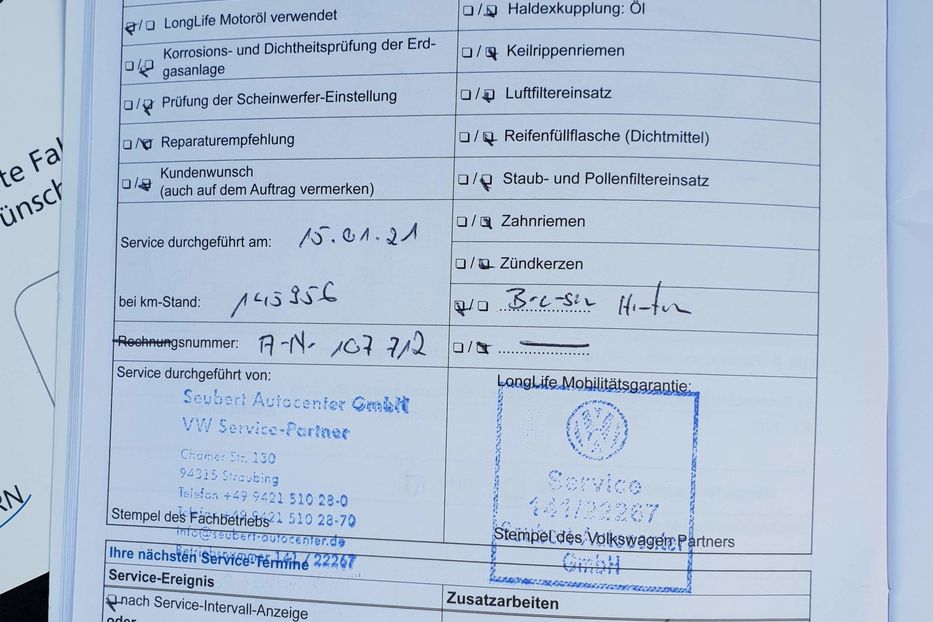 te Fal
ünsch
RN
LongLife Motoröl verwendet
Korrosions- und Dichtheitsprüfung der Erd-
gasanlage
Prüfung der Scheinwerfer-Einstellung
Reparaturempfehlung
Kundenwunsch
(auch auf dem Auftrag vermerken)
Service durchgeführt am: 15.01.21
bei km-Stand: 145956
Rechnungsnummer: A-N- 107 712
Service durchgeführt von:
Seubert Autocenter GmbH
VW Service-Partner
Chamer Str. 130
94315 Straubing
Telefon +49 9421 510 28-0
Telefax +49 9421 510 28-70
Stempel des Fachbetriebs
info@seubert-autocenter.de
Betriebsnummer 141 / 22267
Haldexkupplung: Öl
Keilrippenriemen
Luftfiltereinsatz
Reifenfüllflasche (Dichtmittel)
Staub- und Pollenfiltereinsatz
Zahnriemen
Zündkerzen
LongLife Mobilitätsgarantie:
VW
Service
141/22267
Seubert Autocenter
GmbH
Stempel des Volkswagen Partners
Ihre nächsten Service-Termine
Service-Ereignis
nach Service-Intervall-Anzeige
oder
Zusatzarbeiten